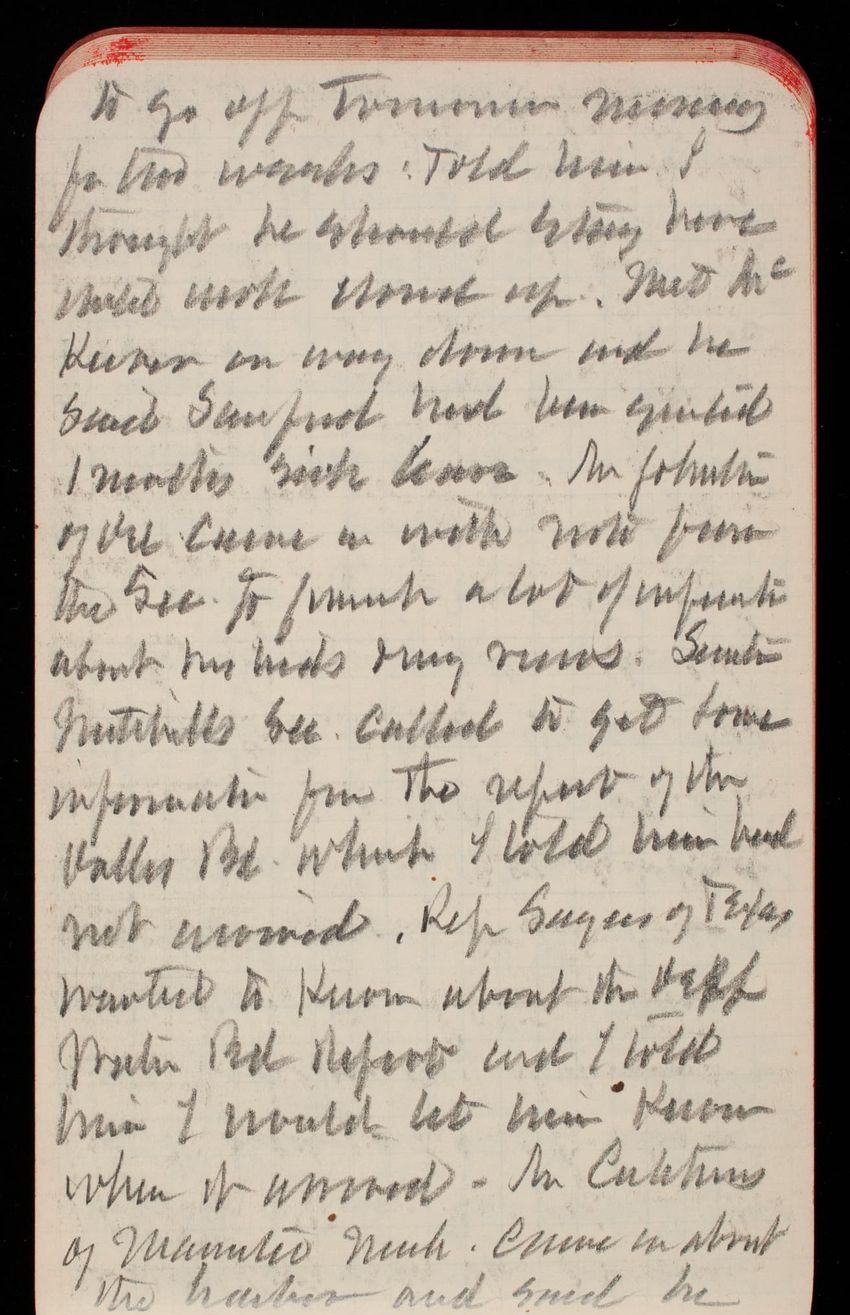 to go off Tomorrow morning
for two weeks. Told him I
thought he should stay here
until work closed up. Met Mc
on way down and he
said Sanford had been granted
1 months sick leave. Mr
of came in with note from
the Sec. to furnish a lot of information
about his views. Senator
Mitchells Sec. Called to get some
information from The report of the
Dalles Bd. which I told him had
not arrived. Rep Sayers of Texas
wanted to Know about the Deep
Water Bd Report and I told
him I would let him Know
when it arrived - Mr
of Manistee Mich. Came in about
the harbor and said he